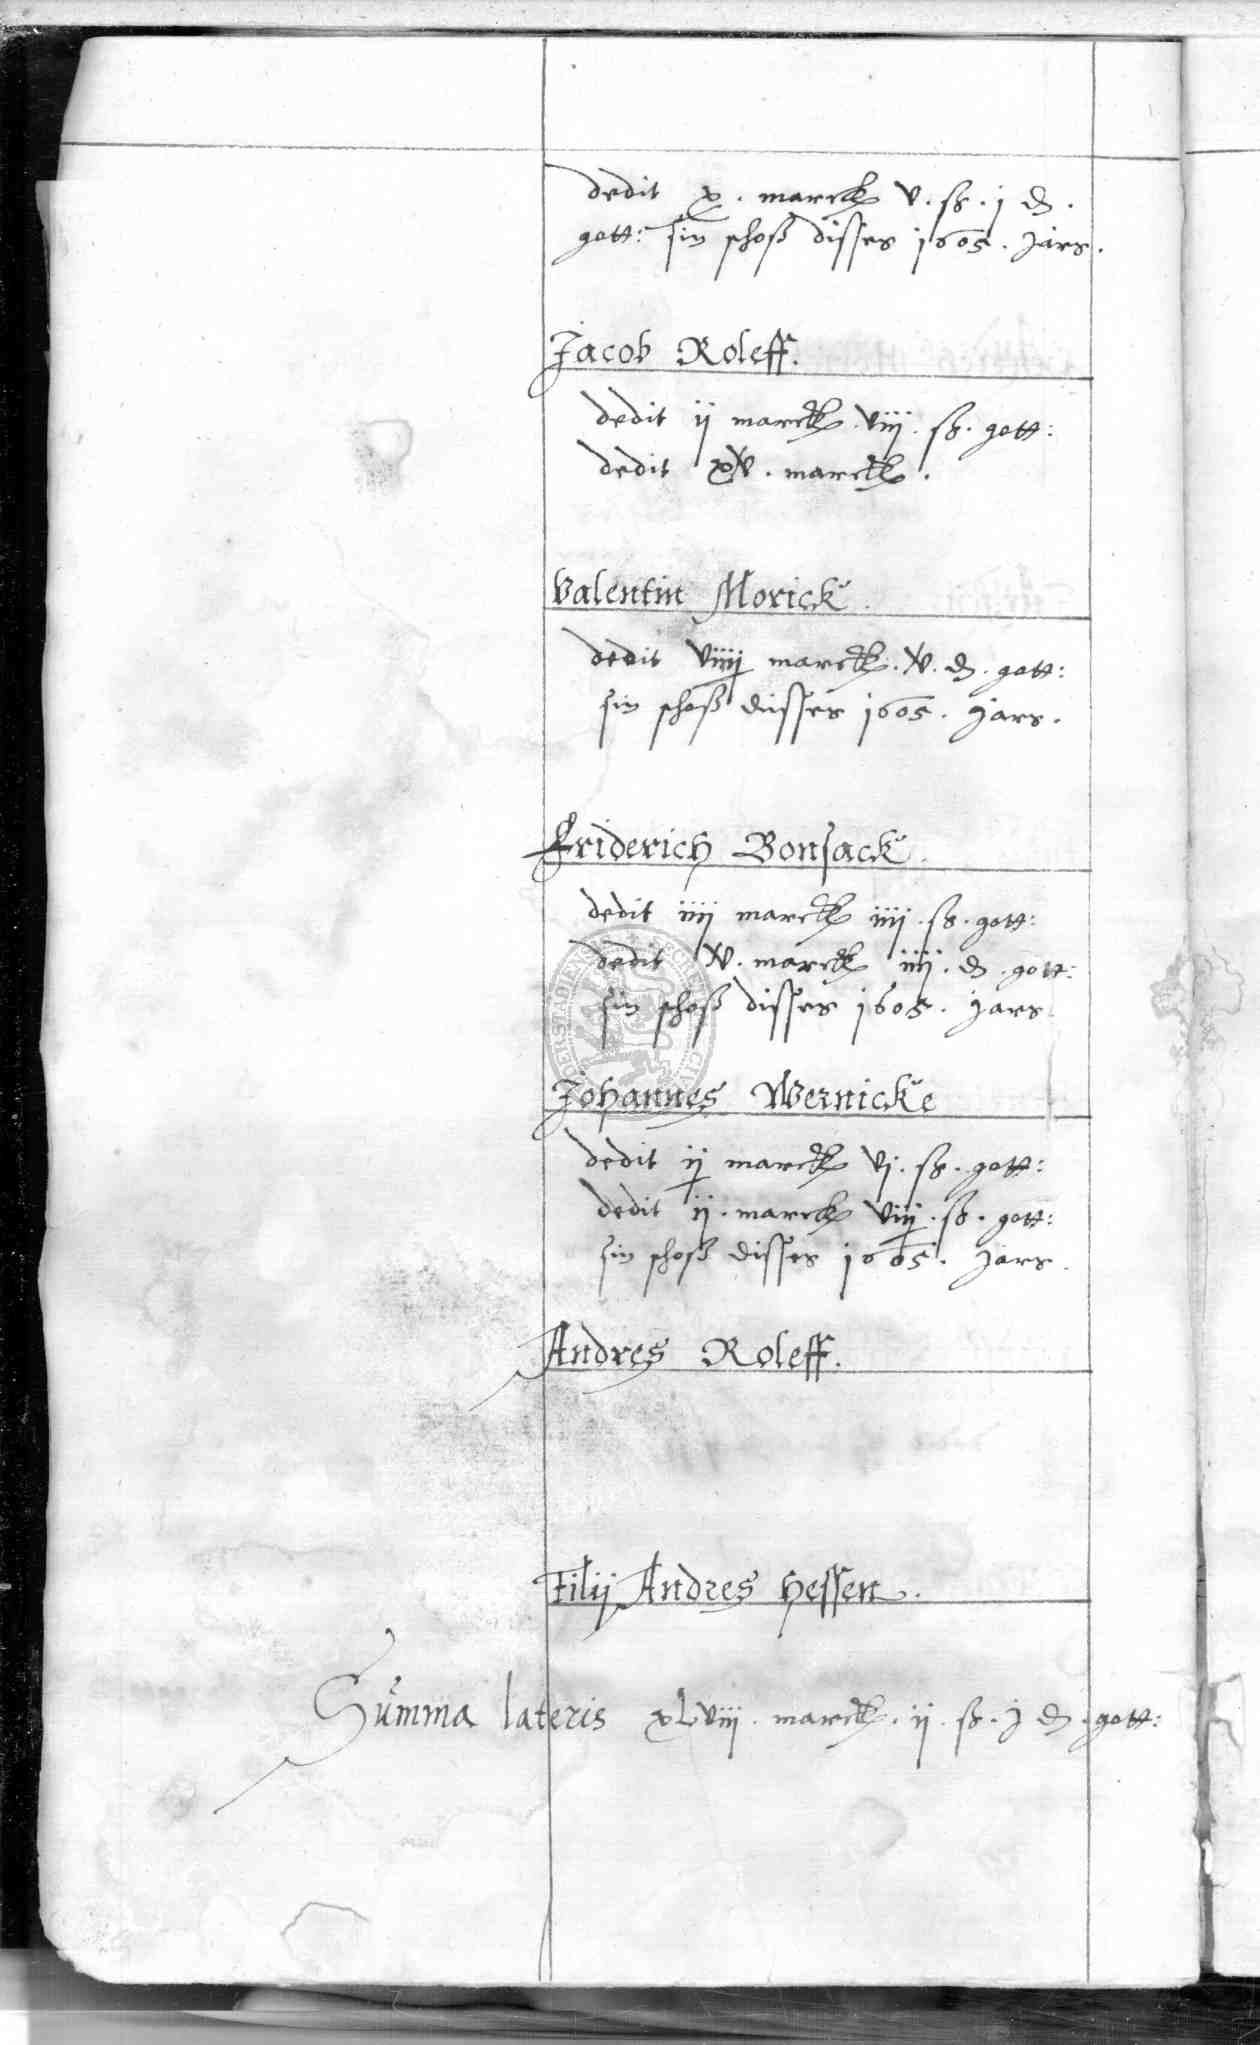 dedit x. marck v. ß. j d.
gott: sin schoß disses 1605. Jars.
Jacob Roleff.
dedit ij marck viij. ß. gott:
dedit xv. marck.
Valentin Morick.
dedit viiij marck. v. d. gott:
sin schoß disses 1605. Jars.
Friderich Bonsack.
dedit iiij marck iiij. ß. gott:
dedit v. marck iiij. d. gott:
sin schoß disses 1605. Jars
Johannes Wernicke
dedit ij marck vj. ß. gott:
dedit ij. marck viij. ß. gott:
sin schoß disses 1605. Jars.
Andres Roleff.
Filij Andres Hessen.
Summa lateris xLviii. marck. ij. ß. j d. gott: